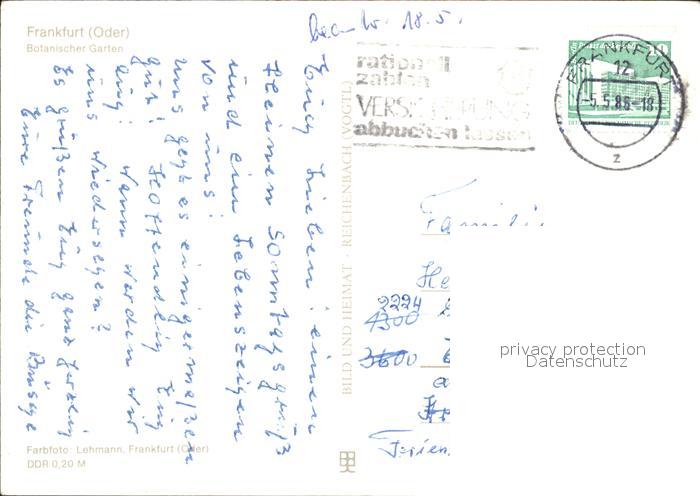 Frankfurt (Oder)
Botanischer Garten
18.5.
rationell
zahlen
VERSICHERUNG
abbuchen lassen
FRANKFURT
12
-5.5.86-18
z
10
Euch Lieben! einen
kleinen Sonntagsgruß
und ein Lebenszeichen
von uns!
Uns geht es einigermaßen
gut! Hoffendlich Euch
auch! Wann werden wir
uns wiedersehen?
Es grüßen Euch ganz herzlich
Eure Freunde die
BILD UND HEIMAT · REICHENBACH (VOGTL)
Familie
He
2224
4300
3600
Ferien
privacy protection
Datenschutz
Farbfoto: Lehmann, Frankfurt (Oder)
DDR 0,20 M